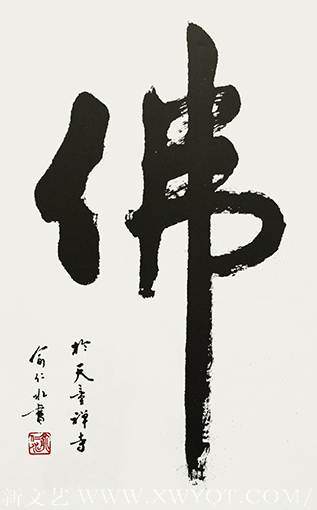 佛
於天童禅寺
俞仁水書
新文艺 WWW.XWYQT.COM/